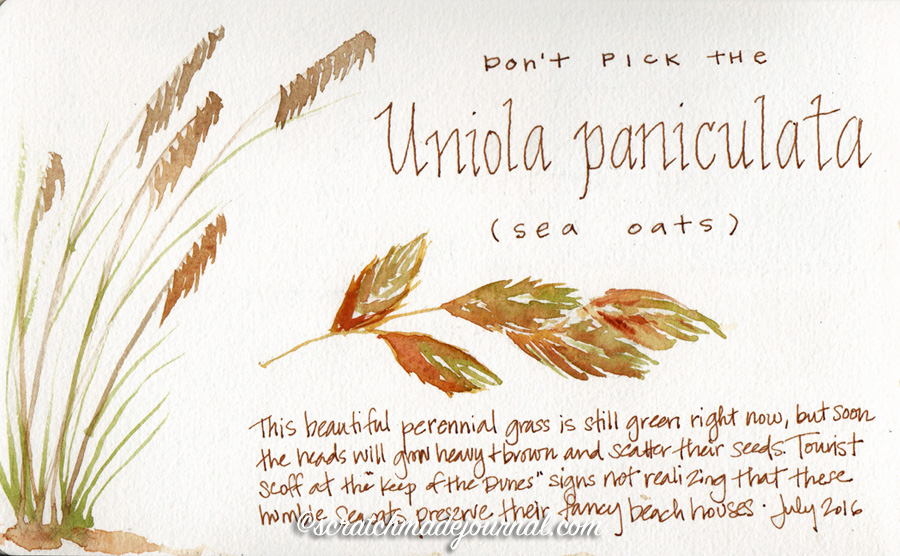 Don't pick the
Uniola paniculata
(sea oats)
This beautiful perennial grass is still green right now, but soon
the heads will grow heavy + brown and scatter their seeds. Tourist
scoff at the "Keep of the Dunes" signs not realizing that these
humble sea oats preserve their fancy beach houses. July 2016
©scratchmadejournal.com